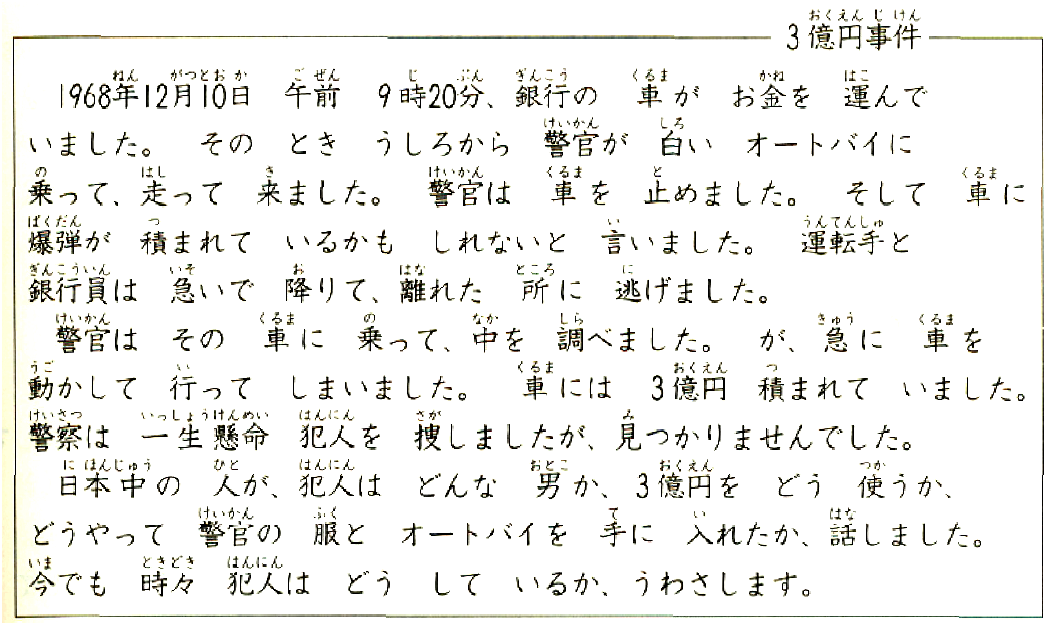 3億円事件
1968年12月10日　午前　9時20分、銀行の　車が　お金を　運んで
いました。　その　とき　うしろから　警官が　白い　オートバイに
乗って、走って　来ました。　警官は　車を　止めました。　そして　車に
爆弾が　積まれて　いるかも　しれないと　言いました。　運転手と
銀行員は　急いで　降りて、離れた　所に　逃げました。
警官は　その　車に　乗って、中を　調べました。　が、急に　車を
動かして　行って　しまいました。　車には　3億円　積まれて　いました。
警察は　一生懸命　犯人を　捜しましたが、見つかりませんでした。
日本中の　人が、犯人は　どんな　男か、3億円を　どう　使うか、
どうやって　警官の　服と　オートバイを　手に　入れたか、話しました。
今でも　時々　犯人は　どう　して　いるか、うわさします。